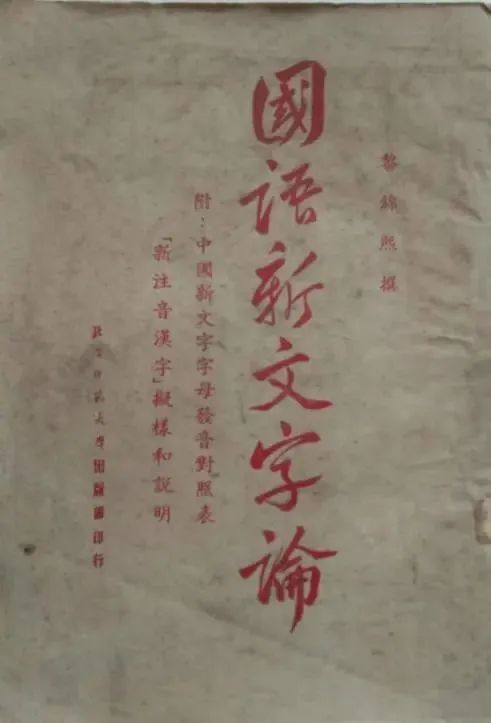 黎錦熙撰
國語新文字論
附：中國新文字字母發音對照表
「新注音漢字」擬樣和說明
北京師範大學出版部印行